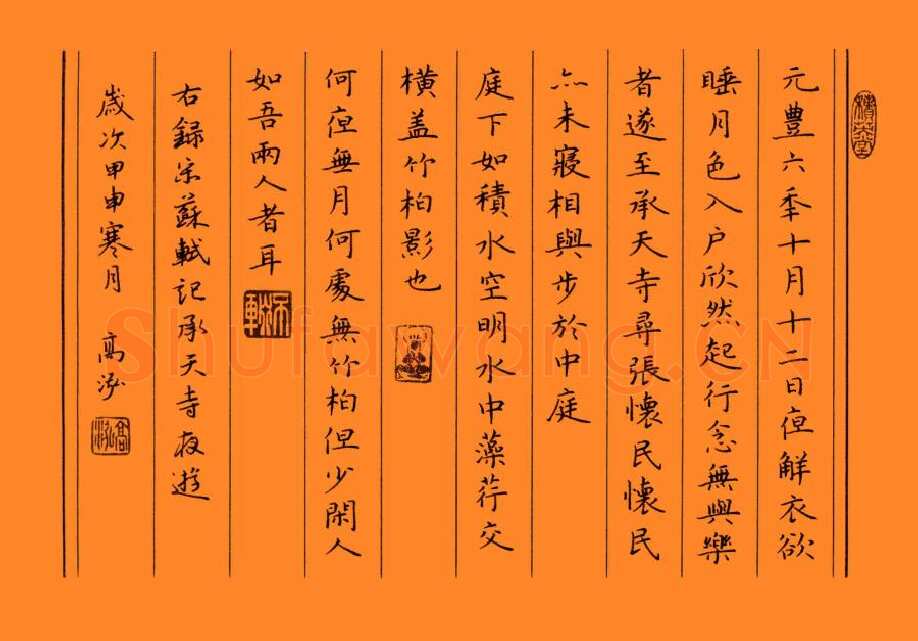 元豐六秊十月十二日夜解衣欲
睡月色入户欣然起行念無與樂
者遂至承天寺尋張懷民懷民
亦未寢相與步於中庭
庭下如積水空明水中藻荇交
橫盖竹柏影也
何夜無月何處無竹柏但少閑人
如吾兩人者耳
右録宋蘇軾記承天寺夜遊
歲次甲申寒月 高泓
Shufawang.CN